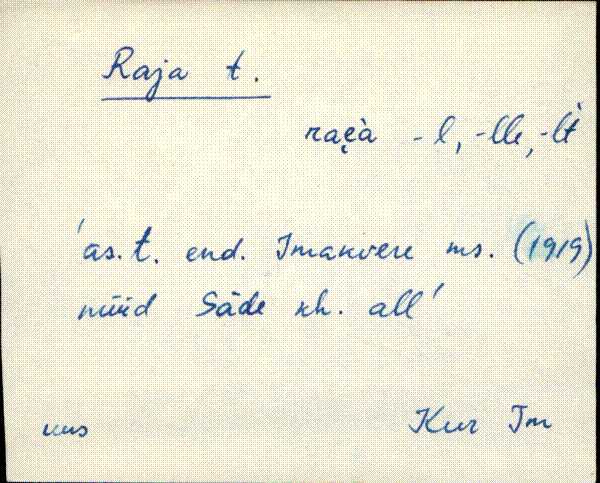 Raja t.
rae̬à -l, -lle, -lt
'as. t. end. Imakvere ms. (1919)
nüid Säde kh. all'
uus Kur Im